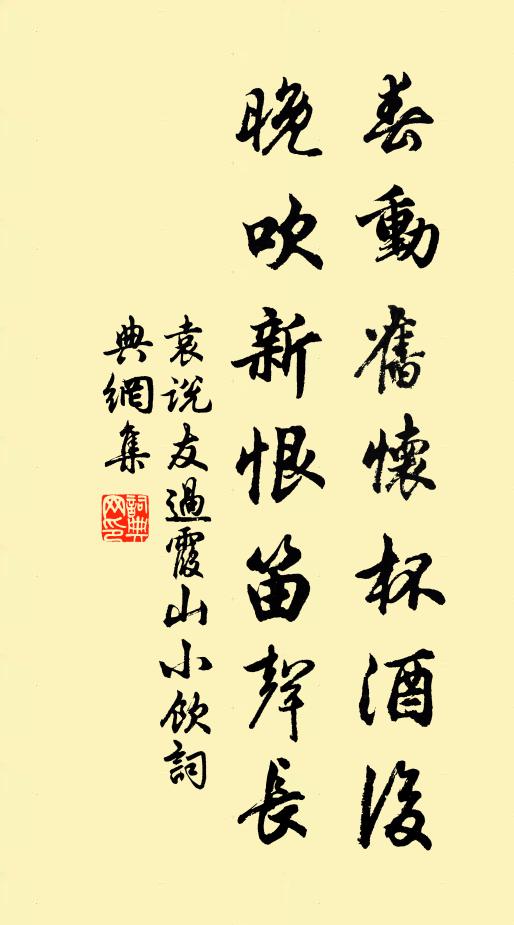 春動舊懷杯酒後
晚吹新恨笛聲長
袁說友過霞山小飲詞
典網集
詞典網印